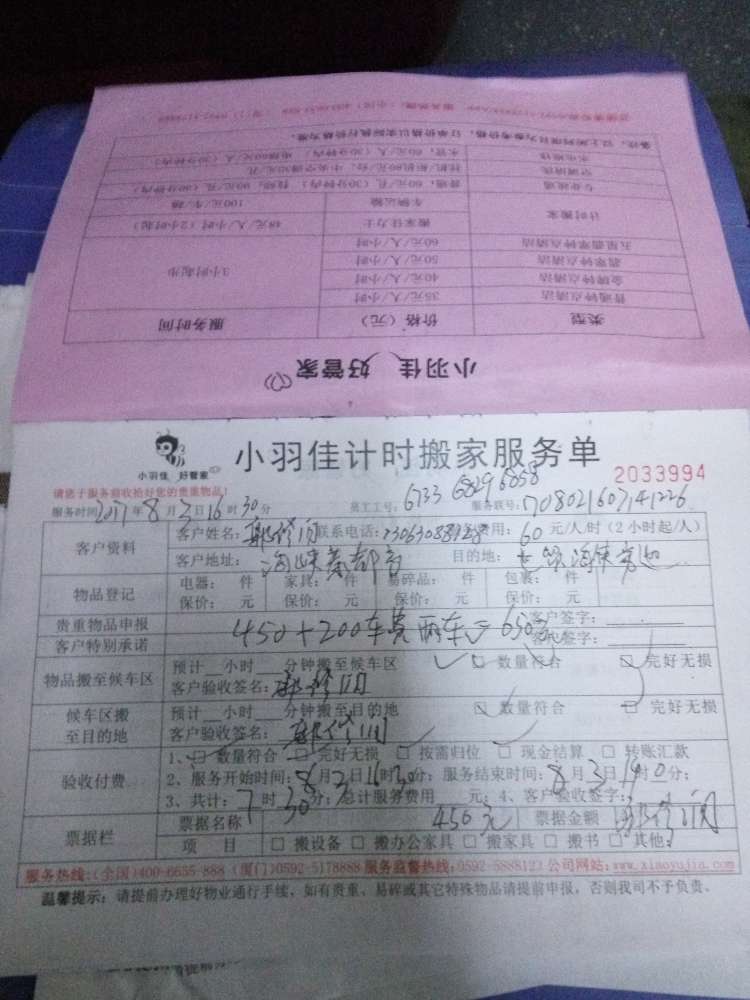 小羽佳 好管家
类型 价格(元) 服务时间
普通钟点清洁 35元/人/小时 3小时起步
金牌钟点清洁 40元/人/小时
翡翠钟点清洁 50元/人/小时
五星翡翠钟点清洁 60元/人/小时
计时搬家 搬家佳力士 48元/人/小时(2小时起)
车辆运输 100元/车/趟
小羽佳 好管家
小羽佳计时搬家服务单
2033994
请您于服务前收拾好您的贵重物品!
服务时间2017年8月3日16时30分 员工工号:6733 6829 6858 服务联号:
客户资料 客户姓名: 联系电话: 服务费用:60元/人/时(2小时起/人)
客户地址: 目的地:
物品登记 电器: 件 家具: 件 易碎品: 件 包裹: 件
保价: 元 保价: 元 保价: 元 保价: 元
贵重物品申报 客户签字:
450+200车费两车=650元
客户特别承诺 客户签字:
物品搬至候车区 预计 小时 分钟搬至候车区 数量符合 完好无损
客户验收签名:
候车区搬至目的地 预计 小时 分钟搬至目的地 数量符合 完好无损
客户验收签名:
验收付费 1、 数量符合 完好无损 按需归位 现金结算 转账汇款
2、服务开始时间:8月3日16时30分;服务结束时间:8月3日19时0分;
3、共计:7时30分;总计服务费用 元;4、客户验收签字:
票据栏 票据名称 450元 票据金额
项 目 搬设备 搬办公家具 搬家具 搬书 其他:
服务热线:(全国)400-6655-888 (厦门)0592-5178888 服务监督热线:0592-5888123 公司网站:www.xiaoyujia.com
温馨提示:请提前办理好物业通行手续,如有贵重、易碎或其它特殊物品请提前申报,否则我司不予负责。